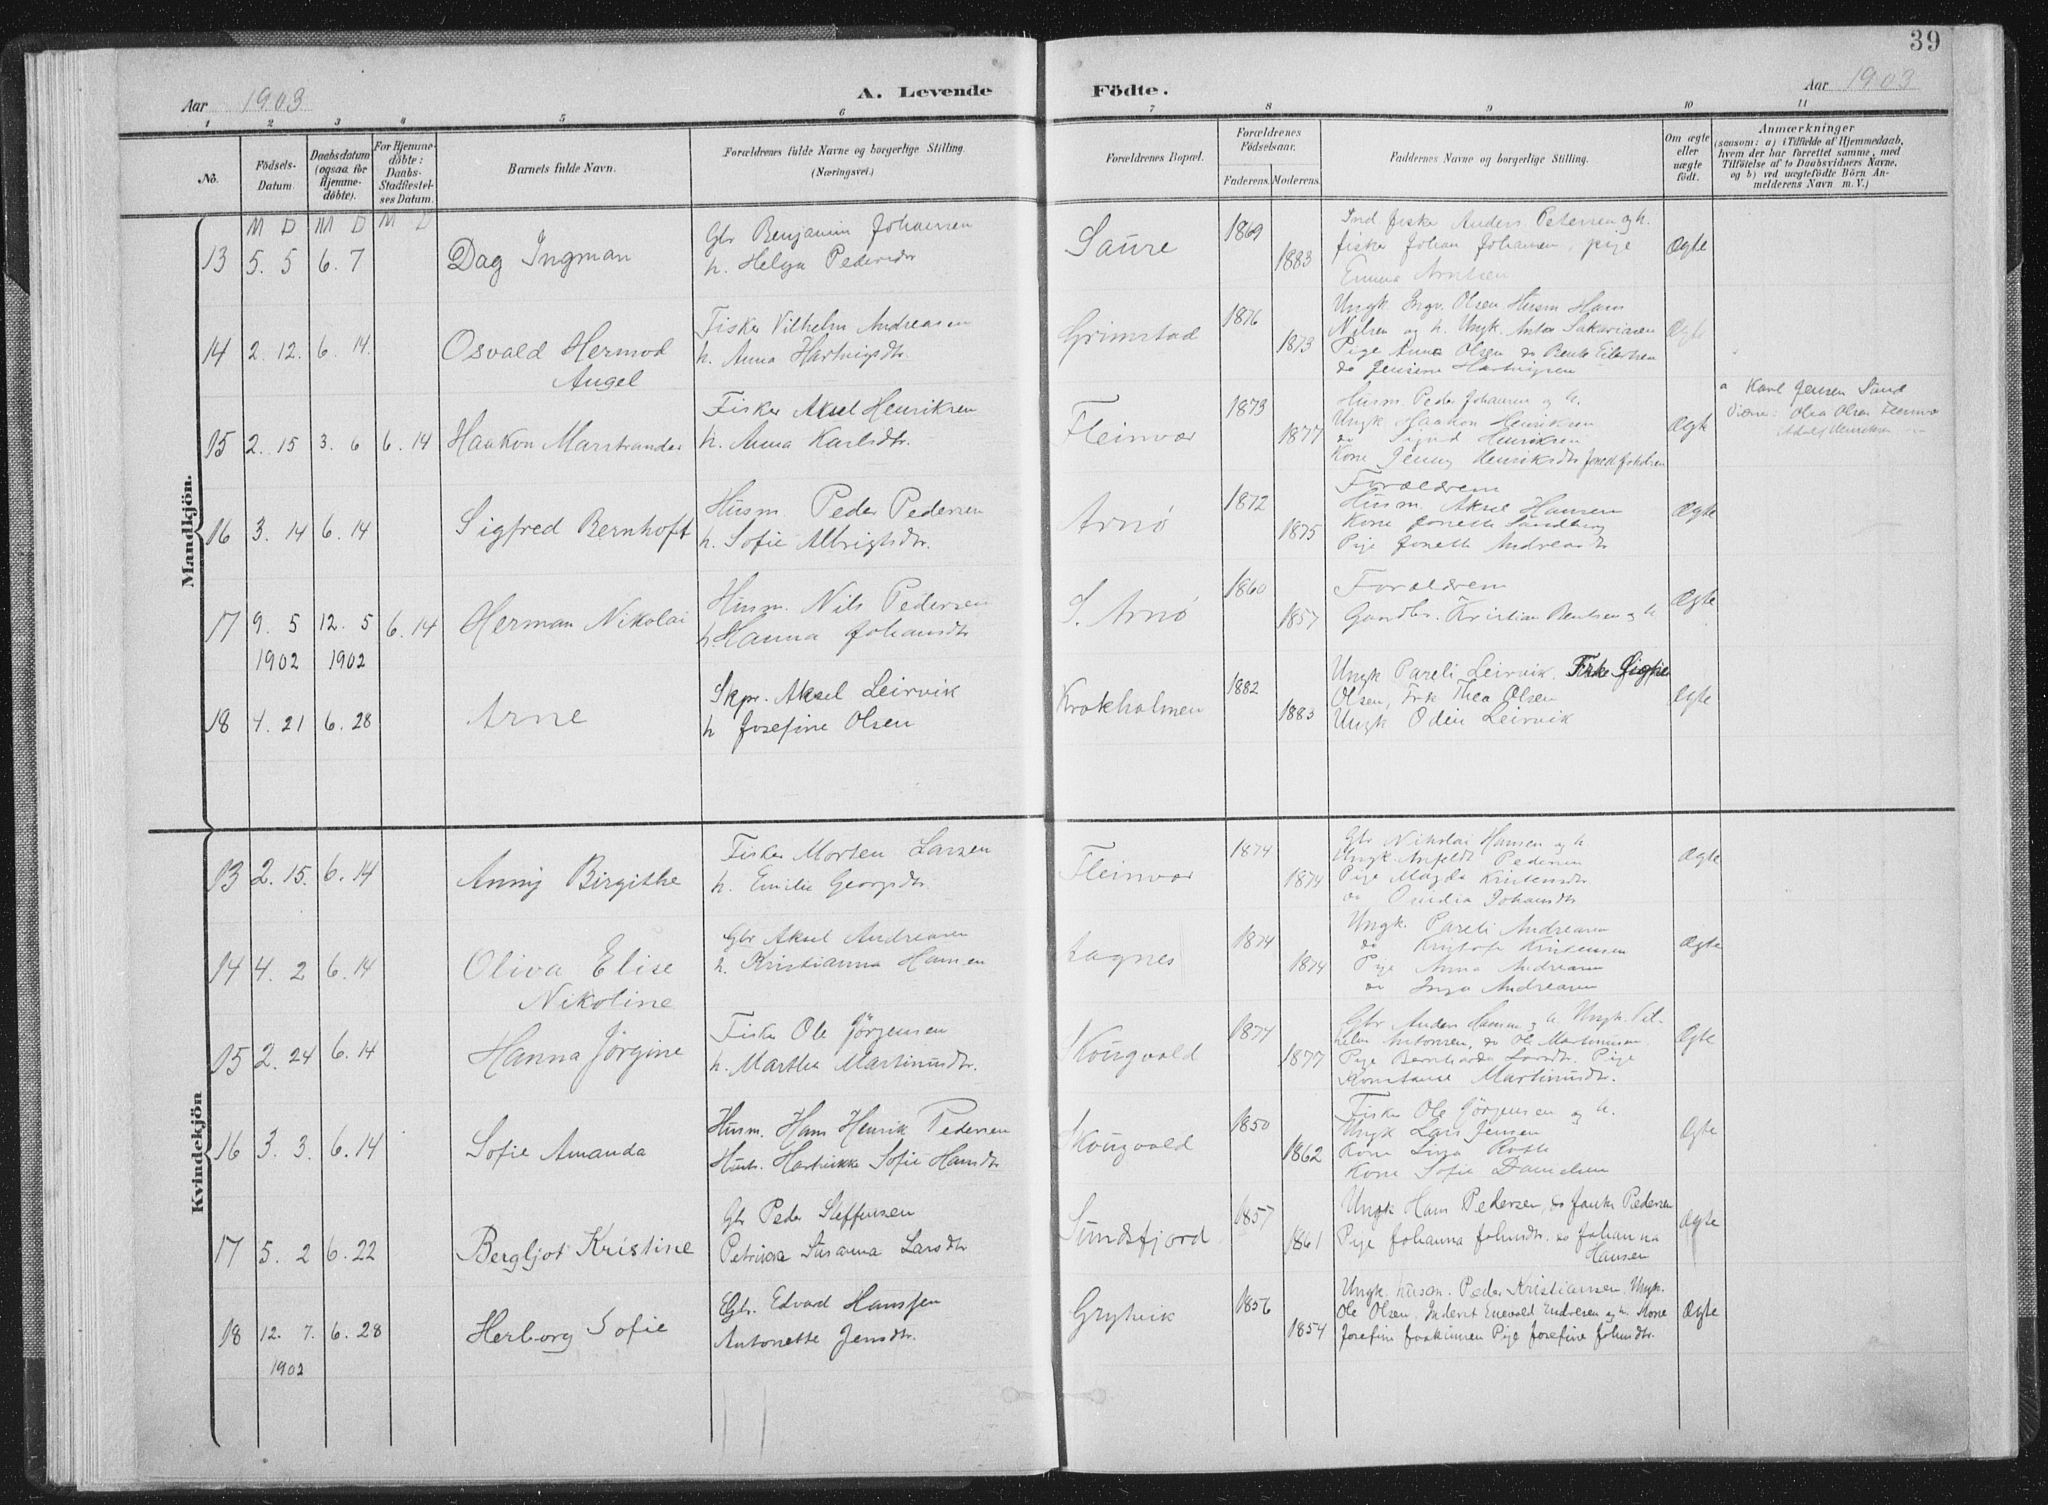 39
Aar 1903 A. Levende Födte. Aar 1903
1 2 3 4 5 6 7 8 9 10 11
No.
Födsels-Datum.
Daabsdatum (ogsaa for Hjemme-döbte).
For Hjemme-döbte: Daabs-Stadfæstel-ses Datum.
Barnets fulde Navn.
Forældrenes fulde Navne og borgerlige Stilling.
(Næringsvei.)
Forældrenes Bopæl.
Forældrenes Födselsaar.
Faderens. Moderens.
Faddernes Navne og borgerlige Stilling.
Om ægte eller uægte födt.
Anmærkninger
(saasom: a) i Tilfælde af Hjemmedaab,
hvem der har forrettet samme, med
Tilföielse af to Daabsvidners Navne,
og b) ved uægtefödte Börn An-
melderens Navn m. V.)
M D M D M D
Mandkjön.
13 5. 5 6. 7 Dag Ingman
Gbr Benjamin Johansen
h. Helga Pedersdtr
Saure 1869 1883
Ind fisker Anders Petersen og h.
fisker Johan Johansen, pige
Emma Arntsen
Ægte
14 2. 12. 6. 14. Osvald Hermod
Angel
Fisker Vilhelm Andreasen
h. Anna Hartvigsdtr.
Grimstad 1876 1873
Ungk. Ingv. Olsen Husm Hans
Nilsen og h. Ungk. Anton Sakariasen
Pige Anna Olsen do Bente Eilertsen
do Jensine Hartvigsen
Ægte
15 2. 15 3. 6 6. 14 Haakon Marstrander
Fisker Aksel Henriksen
h. Anna Karlsdtr.
Fleinvær 1873 1877
Husm. Peder Johansen og h.
Ungk Haakon Henriksen
do Sigurd Henriksen
Kone Jenny Henriksdtr
Ægte
a Karl Jensen Sand
Vidne: Olea Olsen Fleinvær
Adolf Henriksen
16 3. 14 6. 14 Sigfred Bernhoft
Husm. Peder Pedersen
h. Sofie Albrigtsdtr.
Arnø 1872 1875
Forældrene
Husm. Aksel Hansen
Kone Jonette Sandberg
Pige Jonette Andreasdtr
Ægte
17 9. 5 12. 5 6. 14 Herman Nikolai
1902 1902
Husm. Nils Pedersen
h. Hanna Johansdtr
S. Arnø 1860 1857
Forældrene
Gaardbr. Kristian Bentsen og h
Ægte
18 4. 21 6. 28 Arne
Skpr. Aksel Leirvik
h Josefine Olsen
Krokholmen 1882 1883
Ungk Pareli Leirvik. Frk
Olsen, Frk Thea Olsen
Ungk Odin Leirvik
Ægte
Kvindekjön
13 2. 15. 6. 14 Anny Birgithe
Fisker Morten Larsen
h. Emilie Georgsdtr.
Fleinvær 1874 1874
Gbr Nikolai Hansen og h
Ungk. Anfeldt Pedersen
Pige Magda Kristensdtr
do Ovidia Johansdtr
Ægte
14 4. 2 6. 14 Oliva Elise
Nikoline
Gbr Aksel Andreasen
h. Kristianna Hansen
Lagnes 1874 1874
Ungk. Pareli Andreasen
do Kristofer Kristensen
Pige Anna Andreasen
do Inga Andreasen
Ægte
15 2. 24 6. 14 Hanna Jørgine
Fisker Ole Jørgensen
h. Marthe Martinusdtr.
Skougvold 1874 1877
Gbr Anders Hansen og h. Ungk. Vil-
helm Antonsen, do Ole Martinussen
Pige Bernharda Larsdtr. Pige
Konstanse Martinusdtr.
Ægte
16 3. 3. 6. 14 Sofie Amanda
Husm. Hans Henrik Pedersen
Hust. Hartvikke Sofie Hansdtr
Skougvold 1850 1862
Fisker Ole Jørgensen og h.
Ungk Lars Jensen
Kone Lina
Kone Sofie Danielsen
Ægte
17 5. 2 6. 22 Bergljot Kristine
Gbr Peder Steffensen
Petrikka Susanna Larsdtr
Sundsfjord 1857 1861
Ungk Hans Pedersen, do Pedersen
Pige Johanna Johnsdtr. do Johanna
Hansen
Ægte
18 12. 7. 6. 28 Herborg Sofie
1902
Gbr. Edvard Hanssen
Antonette Jensdtr.
Grytvik 1856 1854
Ungk. husm. Peder Kristiansen, Ungk.
Ole Olsen. Inderst Enevold Endresen og h. Kone
Josefine Joakimsen Pige Josefine Johnsdtr.
Ægte